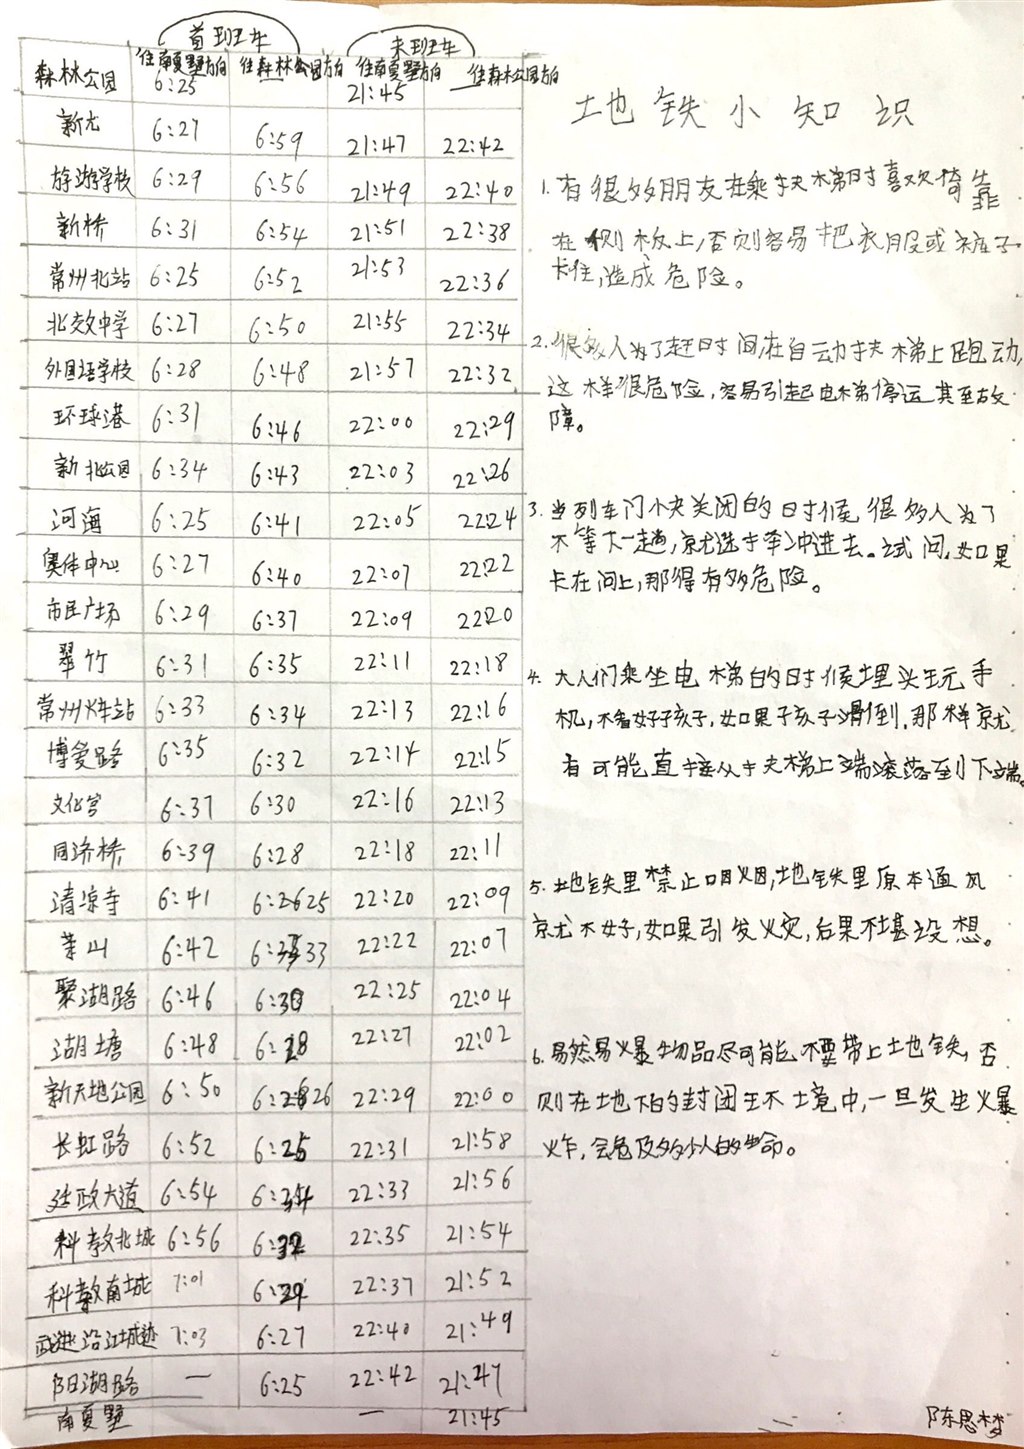 首班车 末班车
往南夏墅方向 往森林公园方向 往南夏墅方向 往森林公园方向
森林公园 6:25 21:45
新龙 6:27 6:59 21:47 22:42
旅游学校 6:29 6:56 21:49 22:40
新桥 6:31 6:54 21:51 22:38
常州北站 6:25 6:52 21:53 22:36
北郊中学 6:27 6:50 21:55 22:34
外国语学校 6:28 6:48 21:57 22:32
环球港 6:31 6:46 22:00 22:29
新北公园 6:34 6:43 22:03 22:26
河海 6:25 6:41 22:05 2224
奥体中心 6:27 6:40 22:07 22:22
市民广场 6:29 6:37 22:09 2220
翠竹 6:31 6:35 22:11 22:18
常州火车站 6:33 6:34 22:13 22:16
博爱路 6:35 6:32 22:14 22:15
文化宫 6:37 6:30 22:16 22:13
同济桥 6:39 6:28 22:18 22:11
清凉寺 6:41 6:2625 22:20 22:09
茶山 6:42 6:33 22:22 22:07
聚湖路 6:46 6:30 22:25 22:04
湖塘 6:48 6:28 22:27 22:02
新天地公园 6:50 6:26 22:29 22:00
长虹路 6:52 6:25 22:31 21:58
延政大道 6:54 6:34 22:33 21:56
科教北城 6:56 6:32 22:35 21:54
科教南城 7:01 6:29 22:37 21:52
武进沿江城迹 7:03 6:27 22:40 21:49
阳湖路 — 6:25 22:42 21:47
南夏墅 — 21:45
土地铁小知识
1. 有很多朋友在乘扶梯时喜欢倚靠
在侧板上,否则容易把衣服或裤子
卡住,造成危险。
2. 很多人为了赶时间,在自动扶梯上跑动,
这样很危险,容易引起电梯停运甚至故
障。
3. 当列车门小快关闭的时候,很多人为了
不等下一趟,就选择冲进去。试问,如果
卡在门上,那得有多危险。
4. 大人们乘坐电梯的时候埋头玩手
机,不看好孩子,如果孩子滑倒,那样就
有可能直接从扶梯上端滚落到下端。
5. 地铁里禁止吸烟,地铁里原本通风
就不好,如果引发火灾,后果不堪设想。
6. 易然易爆物品尽可能不要带上地铁,否
则在地下的封闭环境中,一旦发生爆
炸,会危及多少人的生命。
陈思梦